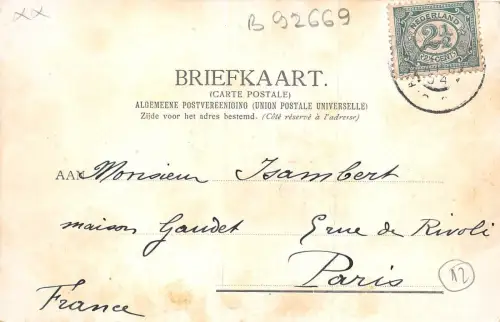 xx
B 92669
NEDERLAND
2½
BRIEFKAART.
(CARTE POSTALE)
ALGEMEENE POSTVEREENIGING (UNION POSTALE UNIVERSELLE)
Zijde voor het adres bestemd. (Côté réservé à l'adresse)
AAN Monsieur Isambert
maison Gaudet rue de Rivoli
Paris
France